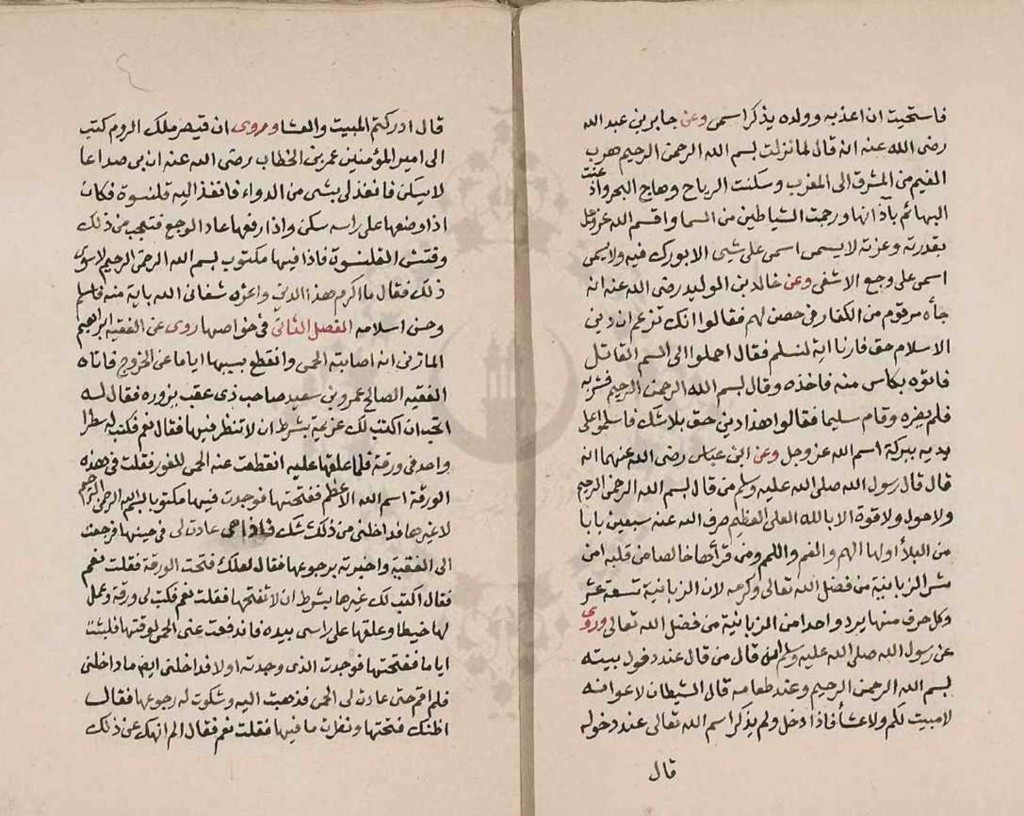 فاستحيت ان اعذبه وولده يذكر اسمى وعن جابر بن عبد الله
رضى الله عنه انه قال لما نزلت بسم الله الرحمن الرحيم هرب
الغيم من المشرق الى المغرب وسكنت الرياح وهاج البحر واذعنت
البهائم بآذانها ورجمت الشياطين من السما واقسم الله عزوجل
بقدرته وعزته لا يسمى اسمى على شيى الا بورك فيه ولا يسمى
اسمى على وجع الا شفى وعن خالد بن الوليد رضى الله عنه انه
جأه مرقوم من الكفار فى حصن لهم فقالوا انك تزعم ان دين
الاسلام حق فارنا اية لنسلم فقال احملوا الى السم القاتل
فاتوه بكاس منه فاخذه وقال بسم الله الرحمن الرحيم فشربه
فلم يضره وقام سليما فقالوا هذا دين حق بلا شك فاسلموا على
يديه ببركة اسم الله عز وجل وعن ابن عباس رضى الله عنهما انه
قال قال رسول الله صلى الله عليه وسلم من قال بسم الله الرحمن الرحيم
ولا حول ولا قوة الا بالله العلى العظيم صرف الله عنه سبعين بابا
من البلأ اولها الهم والغم واللمم ومن قرأها خالصا من قلبه امن
من الزبانية من فضل الله تعالى وكرمه لان الزبانية تسعة عشر
وكل حرف منها يرد واحدا من الزبانية من فضل الله تعالى وروى
عن رسول الله صلى الله عليه وسلم قال من قال عند دخول بيته
بسم الله الرحمن الرحيم وعند طعامه قال الشيطان لاعوانه
لا مبيت لكم ولا عشأ فاذا دخل ولم يذكر اسم الله تعالى عند دخوله
قال
قال ادركتم المبيت والعشا وروى ان قيصر ملك الروم كتب
الى امير المؤمنين عمر بن الخطاب رضى الله عنه ان بى صداعا
لا يسكن فانفذ لى بشى من الدواء فانفذ اليه قلنسوة فكان
اذا وضعها على راسه سكن واذا رفعها عاد الوجع فتعجب من ذلك
وفتش القلنسوة فاذا فيها مكتوب بسم الله الرحمن الرحيم لا سوى
ذلك فقال ما اكرم هذا الدين واعزه شفانى الله باية منه فاسلم
وحسن اسلامه الفصل الثانى فى خواصها روى عن الفقيه ابراهيم
المازنى انه اصابته الحمى وانقطع بسببها اياما عن الخروج فاتاه
الفقيه الصالح عمرو بن سعيد صاحب ذى عقب يزوره فقال له
اتحب ان اكتب لك عزيمة بشرط ان لا تنظر فيها فقال نعم فكتب له سطرا
واحد فى ورقة فلما علقها عليه انقطعت عنه الحمى للفور فقلت فى هذه
الورقة اسم الله الاعظم ففتحتها فوجدت فيها مكتوبا بسم الله الرحمن الرحيم
لا غيرها فداخلنى من ذلك شك فاذا حمى عادت لى فى حينها فرجعت
الى الفقيه واخبرته برجوعها فقال لعلك فتحت الورقة فقلت نعم
فقال اكتب لك غيرها بشرط ان لا تفتحها فقلت نعم فكتب لى ورقة وعمل
لها خيطا وعلقها على راسى بيده فاندفعت عنى الحمى لوقتها فلبثت
اياما ففتحتها فوجدت الذى وجدته اولا فداخلنى ايضا ما داخلنى
فلم اقم حتى عادت لى الحمى فذهبت اليه وشكوت له رجوعها فقال
اظنك فتحتها ونظرت ما فيها فقلت نعم فقال الم انهك عن ذلك